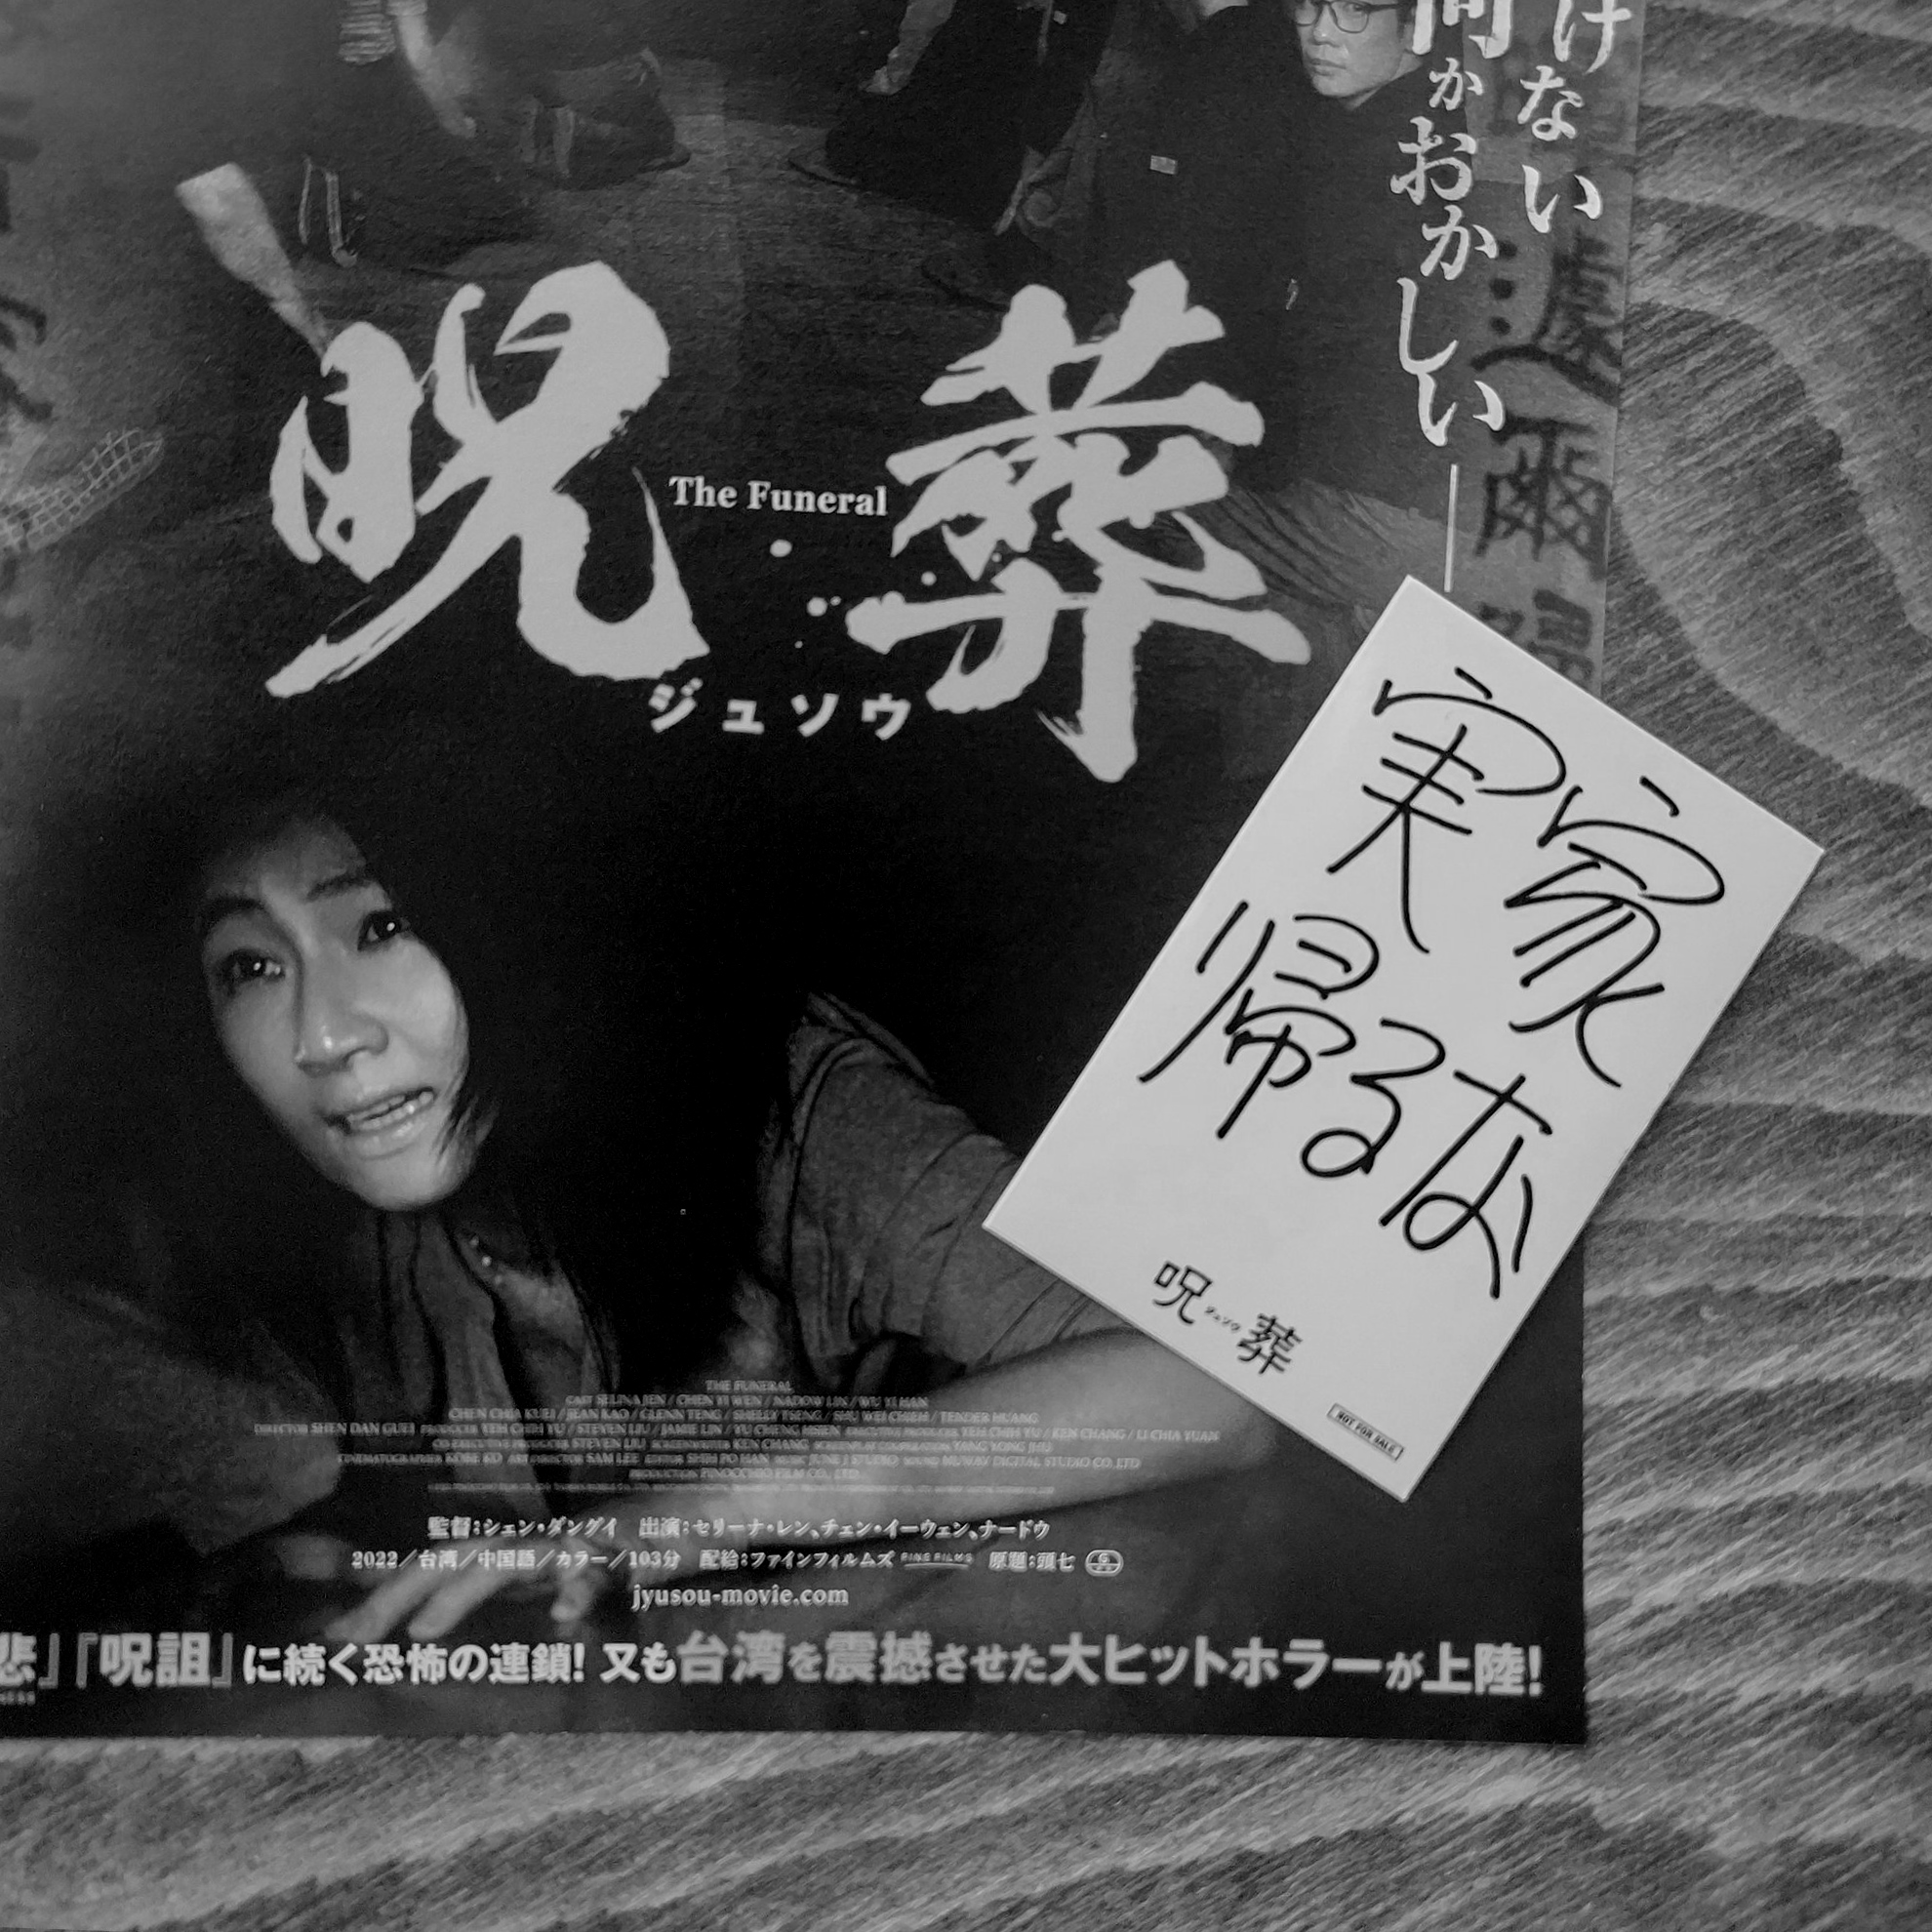 けない
何かおかしい──
遽
爾
呪葬
The Funeral
ジュソウ
実家
帰るな
呪葬
ジュソウ
NOT FOR SALE
THE FUNERAL
CAST SELINA JEN / CHEN YI WEN / NADOW LIN / WU YI HAN
CHEN CHIA KUEI / JEAN KAO / GLENN TENG / SHELLY TSENG / SHU WEI CHIEH / TENDER HUANG
DIRECTOR SHEN DAN GUEI PRODUCER YEH CHIH YU / STEVEN LIU / JAMIE LIN / YU CHENG HSIEN EXECUTIVE PRODUCER YEH CHIH YU / KEN CHANG / LI CHIA YUAN
CO-EXECUTIVE PRODUCER STEVEN LIU SCREENWRITER KEN CHANG SCREENPLAY COOPERATION YANG YONG JHU
CINEMATOGRAPHER KOBE KO ART DIRECTOR SAM LEE EDITOR SHIH PO HAN MUSIC JUNE J STUDIO SOUND MUWAV DIGITAL STUDIO CO. LTD
PRODUCTION PINOCCHIO FILM CO., LTD.
監督：シェン・ダングイ 出演：セリーナ・レン、チェン・イーウェン、ナードウ
2022／台湾／中国語／カラー／103分 配給：ファインフィルムズ FINE FILMS 原題：頭七 G
jyusou-movie.com
悲』『呪詛』に続く恐怖の連鎖! 又も台湾を震撼させた大ヒットホラーが上陸!
NESS